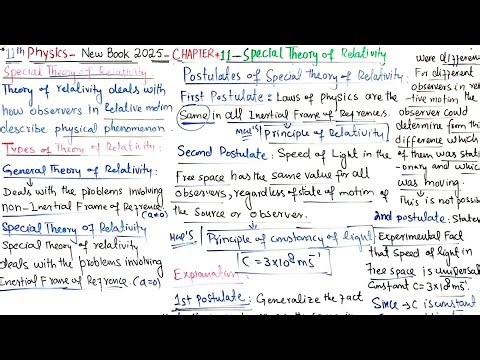 11th Physics - New Book 2025 - CHAPTER # 11 - Special Theory of Relativity
Special Theory of Relativity:
Theory of relativity deals with
how observers in relative motion
describe physical phenomenon.
Types of Theory of Relativity:
General Theory of Relativity:
Deals with the problems involving
non-Inertial Frame of Refrence. (a≠0)
Special Theory of Relativity
Special Theory of relativity
deals with the problems involving
Inertial Frame of Refrence. (a=0)
Postulates of Special Theory of Relativity.
First Postulate: Laws of physics are the
Same in all Inertial Frame of Refrences.
MCQ'S Principle of Relativity
Second Postulate: Speed of Light in the
Free space has the same value for all
observers, regardless of state of motion of
the Source or observer.
MCQ'S Principle of constancy of light
C = 3×10⁸ms⁻¹
Explanation:
1st postulate: Generalize the fact
were different
For different
observers in rela
-tive motion the
observer could
determine from this
difference which
of them was stati
-onary and which
was moving.
This is not possib
2nd postulate: States
Experimental Fact
that speed of light in
free space is universal
Constant C = 3×10⁸ms⁻¹
Since → C is constant